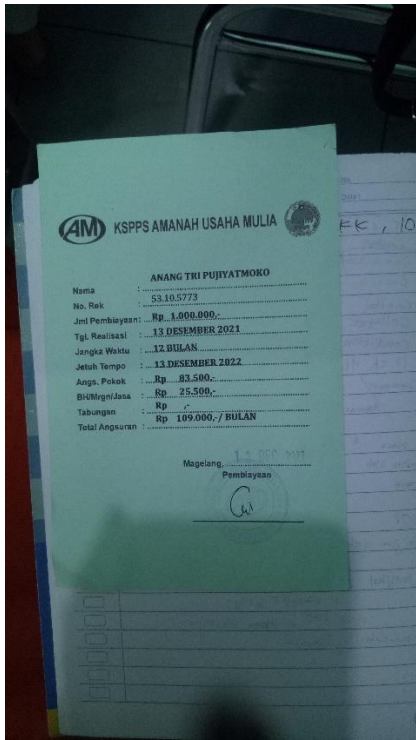 AM KSPPS AMANAH USAHA MULIA
KK, 10
Nama : ANANG TRI PUJIYATMOKO
No. Rek : 53.10.5773
Jml Pembiayaan: Rp 1.000.000,-
Tgl. Realisasi : 13 DESEMBER 2021
Jangka Waktu : 12 BULAN
Jetuh Tempo : 13 DESEMBER 2022
Angs. Pokok : Rp 83.500,-
BH/Mrgn/Jasa : Rp 25.500,-
Tabungan : Rp ,-
Total Angsuran : Rp 109.000,-/ BULAN
Magelang, 13 DEC 2021
Pembiayaan